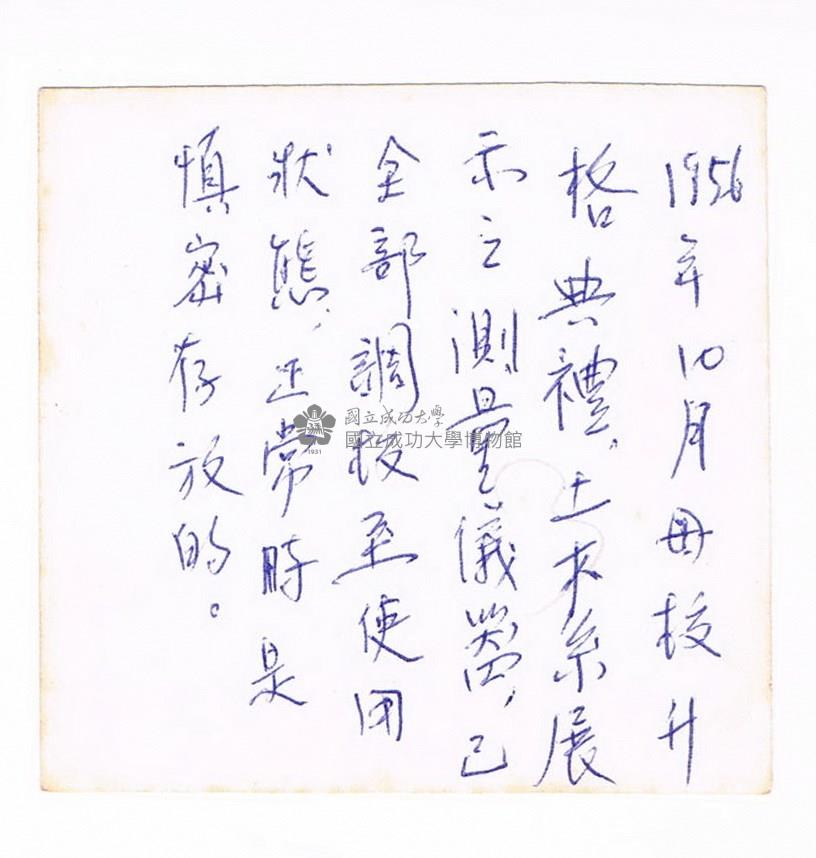 1956年10月母校升
格典禮,土木系展
示之測量儀器,已
全部調校至使用
狀態,正常時是
慎密存放的。
國立成功大學
國立成功大學博物館
1931